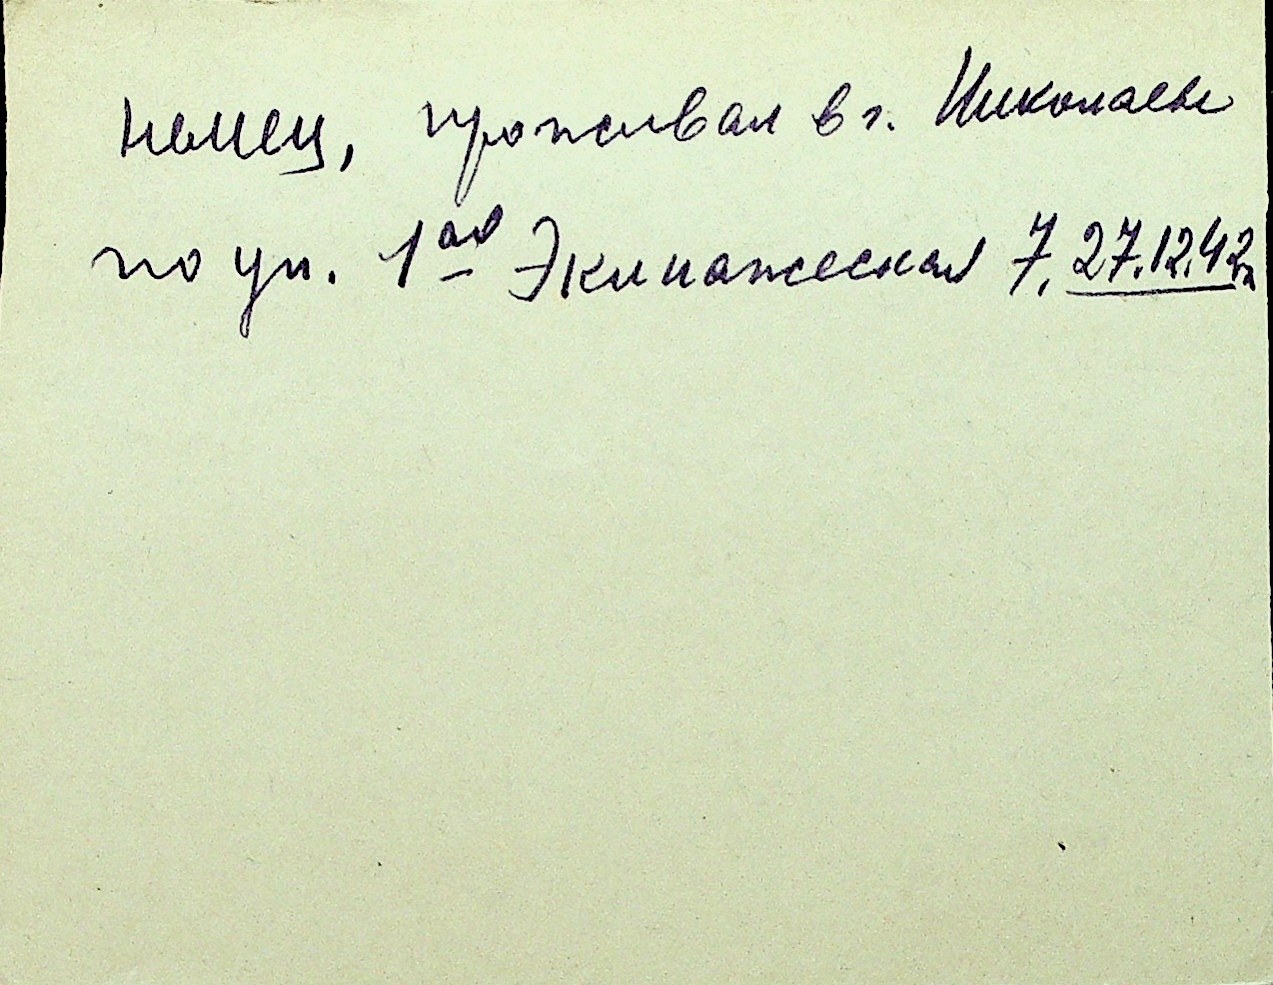 немец, проживал в г. Николаеве
по ул. 1ая Экипажеская 7, 27.12.42г.